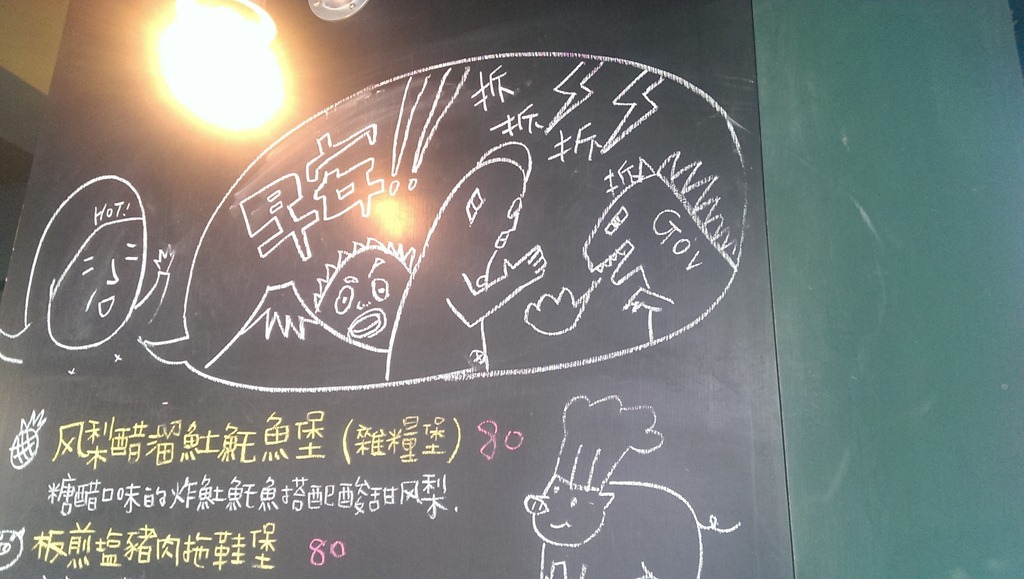 HOT!
早安!!
拆
拆
拆
拆
Gov
风梨醋溜魠魠魚堡(雜糧堡) 80
糖醋口味的炸魠魠魚搭配酸甜风梨.
板煎塩豬肉拖鞋堡 80